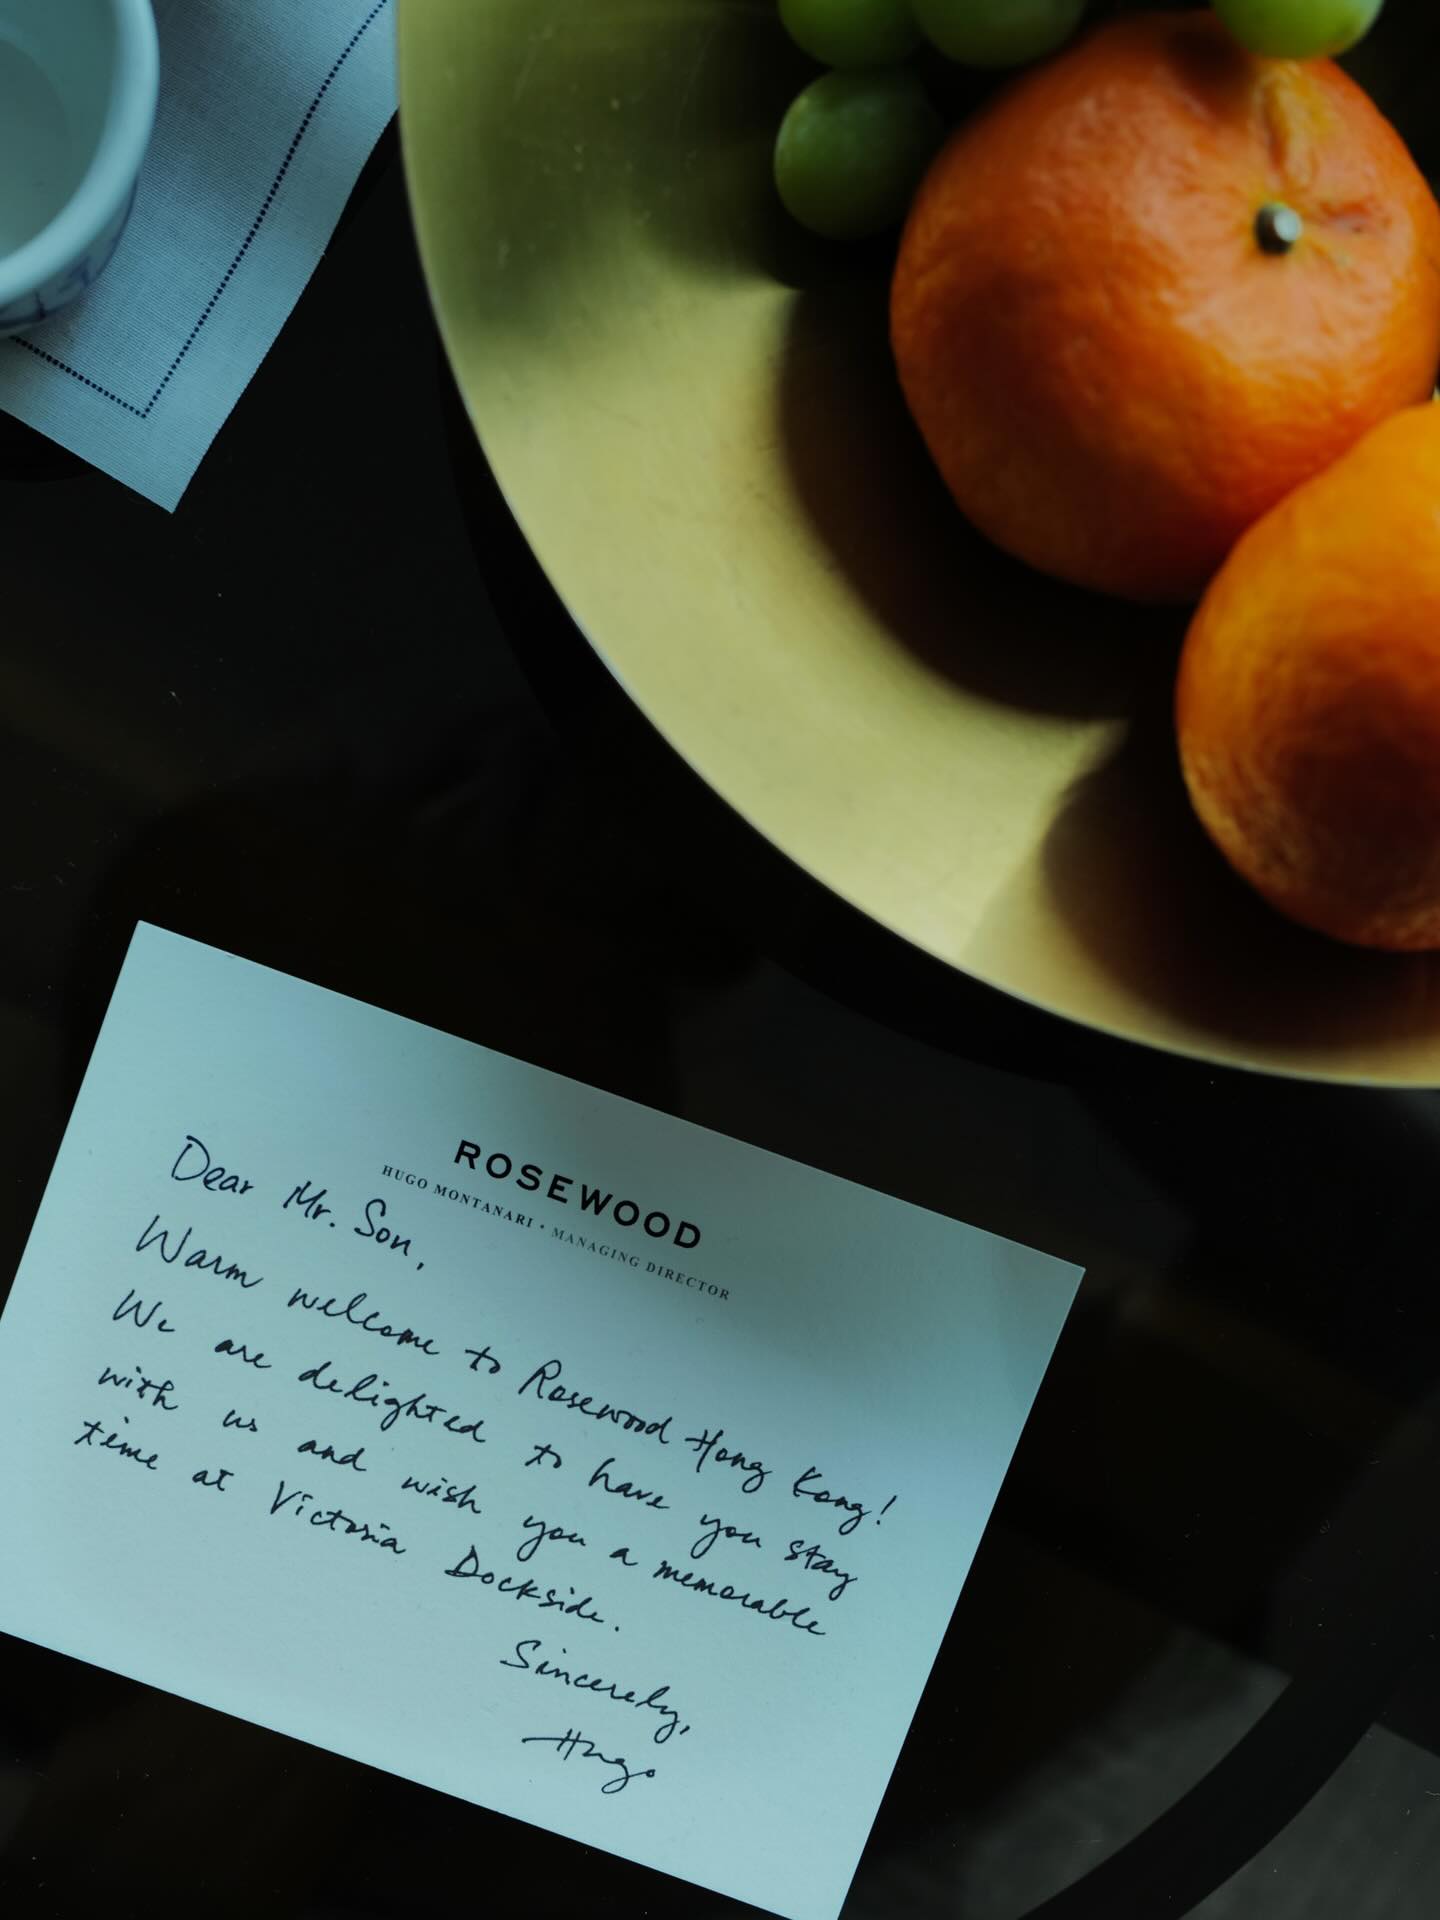 ROSEWOOD
HUGO MONTANARI • MANAGING DIRECTOR
Dear Mr. Son,
Warm welcome to Rosewood Hong Kong!
We are delighted to have you stay
with us and wish you a memorable
time at Victoria Dockside.
Sincerely,
Hugo